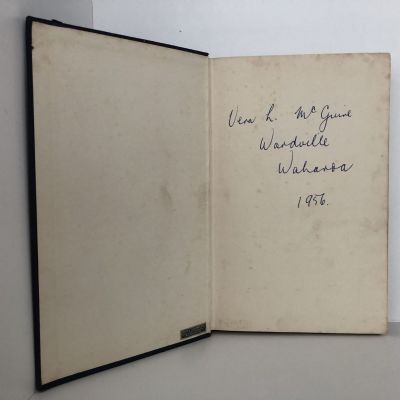 Vera L. McGuire
Wardville
Waharoa
1956.